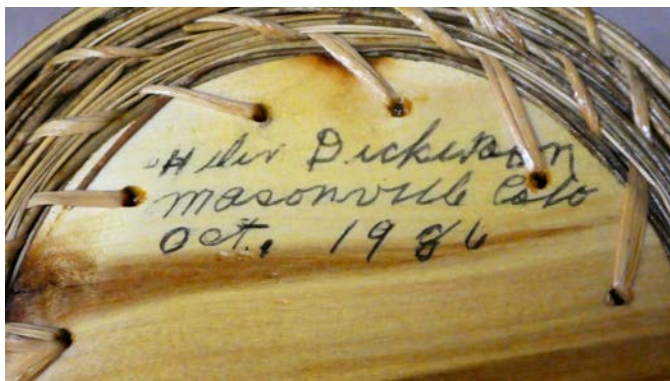 Helen Dickerson
Masonville Colo
Oct., 1986